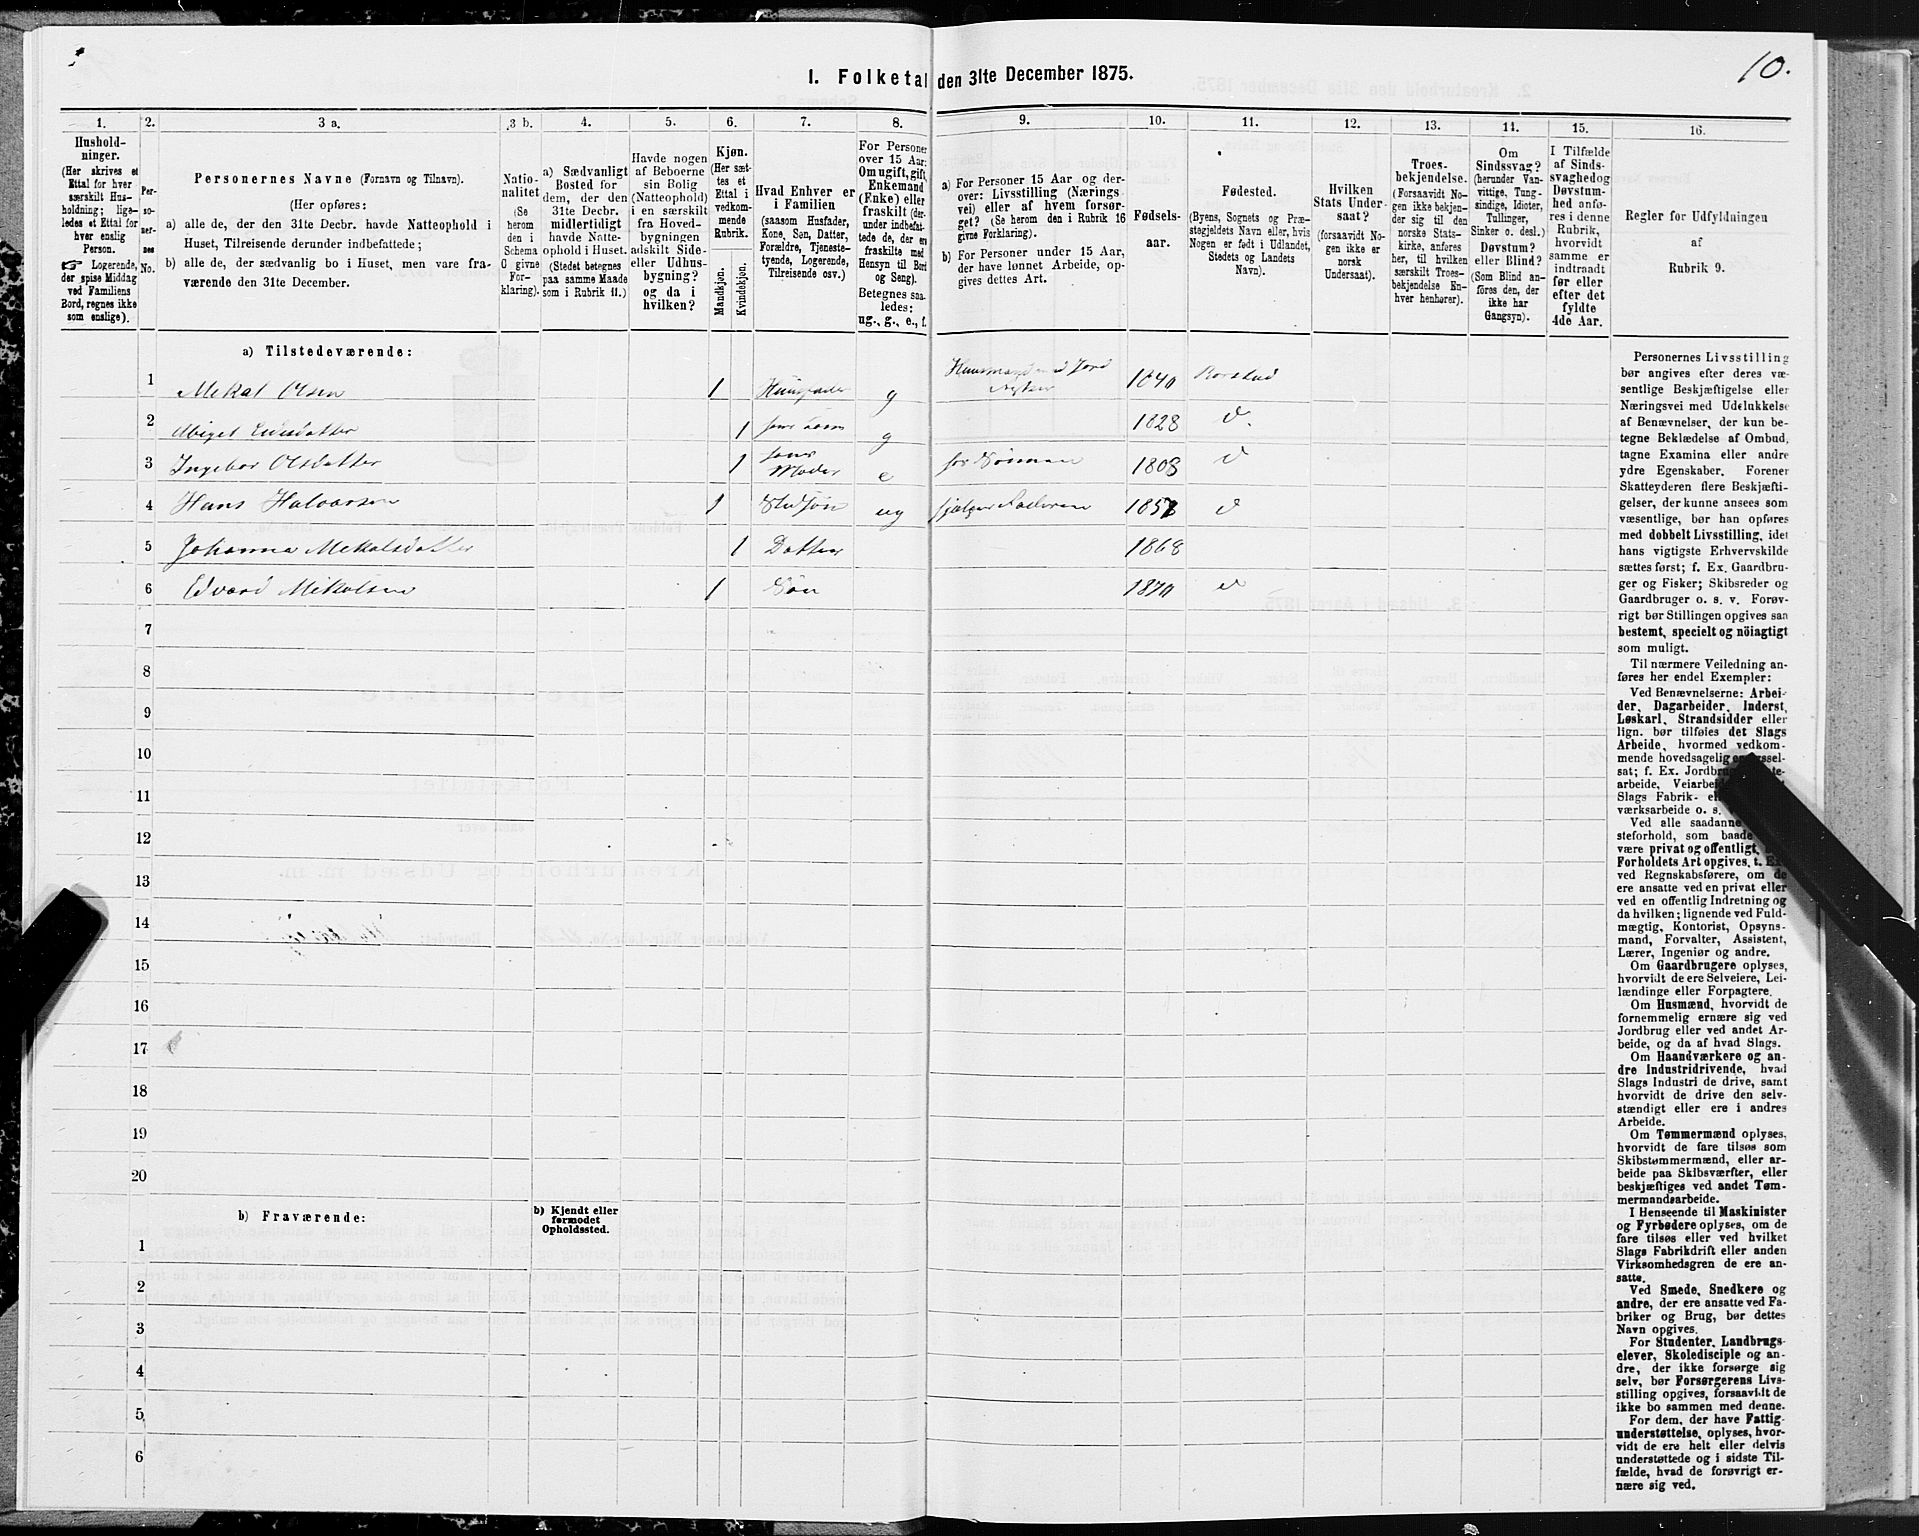 10.
1. Folketal den 31te December 1875.
1.
2.
3 a.
3 b.
4.
5.
6.
7.
8.
9.
10.
11.
12.
13.
14.
15.
16.
Hushold-
ninger.
(Her skrives et
Ettal for hver
særskilt Hus-
holdning; lige-
ledes et Ettal for
hver enslig
Person.
☞ Logerende,
der spise Middag
ved Familiens
Bord, regnes ikke
som enslige).
Per-
so-
ner-
nes
No.
Personernes Navne (Fornavn og Tilnavn).
(Her opføres:
a) alle de, der den 31te Decbr. havde Natteophold i
Huset, Tilreisende derunder indbefattede;
b) alle de, der sædvanlig bo i Huset, men vare fra-
værende den 31te December.
Natio-
nalitet
(Se
herom
den i
Schema
C givne
For-
klaring).
a) Sædvanligt
Bosted for
dem, der den
31te Decbr.
midlertidigt
havde Natte-
ophold i Huset.
(Stedet betegnes
paa samme Maade
som i Rubrik 11.)
Havde nogen
af Beboerne
sin Bolig
(Natteophold)
i en særskilt
fra Hoved-
bygningen
adskilt Side-
eller Udhus-
bygning?
og da i
hvilken?
Kjøn.
(Her sæt-
tes et
Ettal i
vedkom-
mende
Rubrik.
Mandkjøn.
Kvindekjøn.
Hvad Enhver er
i Familien
(saasom Husfader,
Kone, Søn, Datter,
Forældre, Tjeneste-
tyende, Logerende,
Tilreisende osv.)
For Personer
over 15 Aar:
Om ugift, gift,
Enkemand
(Enke) eller
fraskilt (der-
under indbefat-
tede de, der ere
fraskilte med
Hensyn til Bord
og Seng).
Betegnes saa-
ledes:
ug., g., e., f.
a) For Personer 15 Aar og der-
over: Livsstilling (Nærings-
vei) eller af hvem forsør-
get? (Se herom den i Rubrik 16
givne Forklaring).
b) For Personer under 15 Aar,
der have lønnet Arbeide, op-
gives dettes Art.
Fødsels-
aar.
Fødested.
(Byens, Sognets og Præ-
stegjeldets Navn eller, hvis
Nogen er født i Udlandet,
Stedets og Landets
Navn).
Hvilken
Stats Under-
saat?
(forsaavidt No-
gen ikke er
norsk
Undersaat).
Troes-
bekjendelse.
(Forsaavidt No-
gen ikke bekjen-
der sig til den
norske Stats-
kirke, anføres
her, til hvilken
særskilt Troes-
bekjendelse En-
hver henhører).
Om
Sindssvag?
(herunder Van-
vittige, Tung-
sindige, Idioter,
Tullinger,
Sinker o. desl.)
Døvstum?
eller Blind?
(Som Blind an-
føres den, der
ikke har
Gangsyn).
I Tilfælde
af Sinds-
svaghed og
Døvstum-
hed anfø-
res i denne
Rubrik,
hvorvidt
samme er
indtraadt
før eller
efter det
fyldte
4de Aar.
Regler for Udfyldningen
af
Rubrik 9.
a) Tilstedeværende:
1 Mekal Olsen 1 Huusfader g Huusmand med Jord 1840
2 1 g 1828 d.
3 Ingebor Olsdatter 1 hans Moder e for Sønnen 1808 d
4 Hans Halvorsen 1 Stedsøn ug hjelper Faderen d
5 Johanna Mekalsdatter 1 Datter 1868
6 Edvard Mekalsen 1 Søn 1870 d
7
8
9
10
11
12
13
14
15
16
17
18
19
20
b) Fraværende:
b) Kjendt eller
formodet
Opholdssted.
1
2
3
4
5
6
Personernes Livsstilling
bør angives efter deres væ-
sentlige Beskjæftigelse eller
Næringsvei med Udelukkelse
af Benævnelser, der kun be-
tegne Beklædelse af Ombud,
tagne Examina eller andre
ydre Egenskaber. Forener
Skatteyderen flere Beskjæfti-
gelser, der kunne ansees som
væsentlige, bør han opføres
med dobbelt Livsstilling, idet
hans vigtigste Erhvervskilde
sættes først; f. Ex. Gaardbru-
ger og Fisker; Skibsreder og
Gaardbruger o. s. v. Forøv-
rigt bør Stillingen opgives saa
bestemt, specielt og nöiagtigt
som muligt.
Til nærmere Veiledning an-
føres her endel Exempler:
Ved Benævnelserne: Arbei-
der, Dagarbeider, Inderst,
Løskarl, Strandsidder eller
lign. bør tilføies det Slags
Arbeide, hvormed vedkom-
mende hovedsagelig
sat; f. Ex.
arbeide,
Slags Fabrik-
værksarbeide o. s.
Ved alle saadanne
steforhold, som baade
være privat og offentligt,
Forholdets Art opgives, t. Ex.
ved Regnskabsførere, om de
ere ansatte ved en privat eller
ved en offentlig Indretning og
da hvilken; lignende ved Fuld-
mægtig, Kontorist, Opsyns-
mand, Forvalter, Assistent,
Lærer, Ingeniør og andre.
Om Gaardbrugere oplyses,
hvorvidt de ere Selveiere, Lei-
lændinge eller Forpagtere.
Om Husmænd, hvorvidt de
fornemmelig ernære sig ved
Jordbrug eller ved andet Ar-
beide, og da af hvad Slags.
Om Haandværkere og an-
dre Industridrivende, hvad
Slags Industri de drive, samt
hvorvidt de drive den selv-
stændigt eller ere i andres
Arbeide.
Om Tømmermænd oplyses,
hvorvidt de fare tilsøs som
Skibstømmermænd, eller ar-
beide paa Skibsværfter, eller
beskjæftiges ved andet Tøm-
mermandsarbeide.
I Henseende til Maskinister
og Fyrbødere oplyses, om de
fare tilsøs eller ved hvilket
Slags Fabrikdrift eller anden
Virksomhedsgren de ere an-
satte.
Ved Smede, Snedkere og
andre, der ere ansatte ved Fa-
briker og Brug, bør dettes
Navn opgives.
For Studenter, Landbrugs-
elever, Skoledisciple og an-
dre, der ikke forsørge sig
selv, bør Forsørgerens Livs-
stilling opgives, forsaavidt de
ikke bo sammen med denne.
For dem, der have Fattig-
understøttelse, oplyses, hvor-
vidt de ere helt eller delvis
understøttede og i sidste Til-
fælde, hvad de forøvrigt er-
nære sig ved.